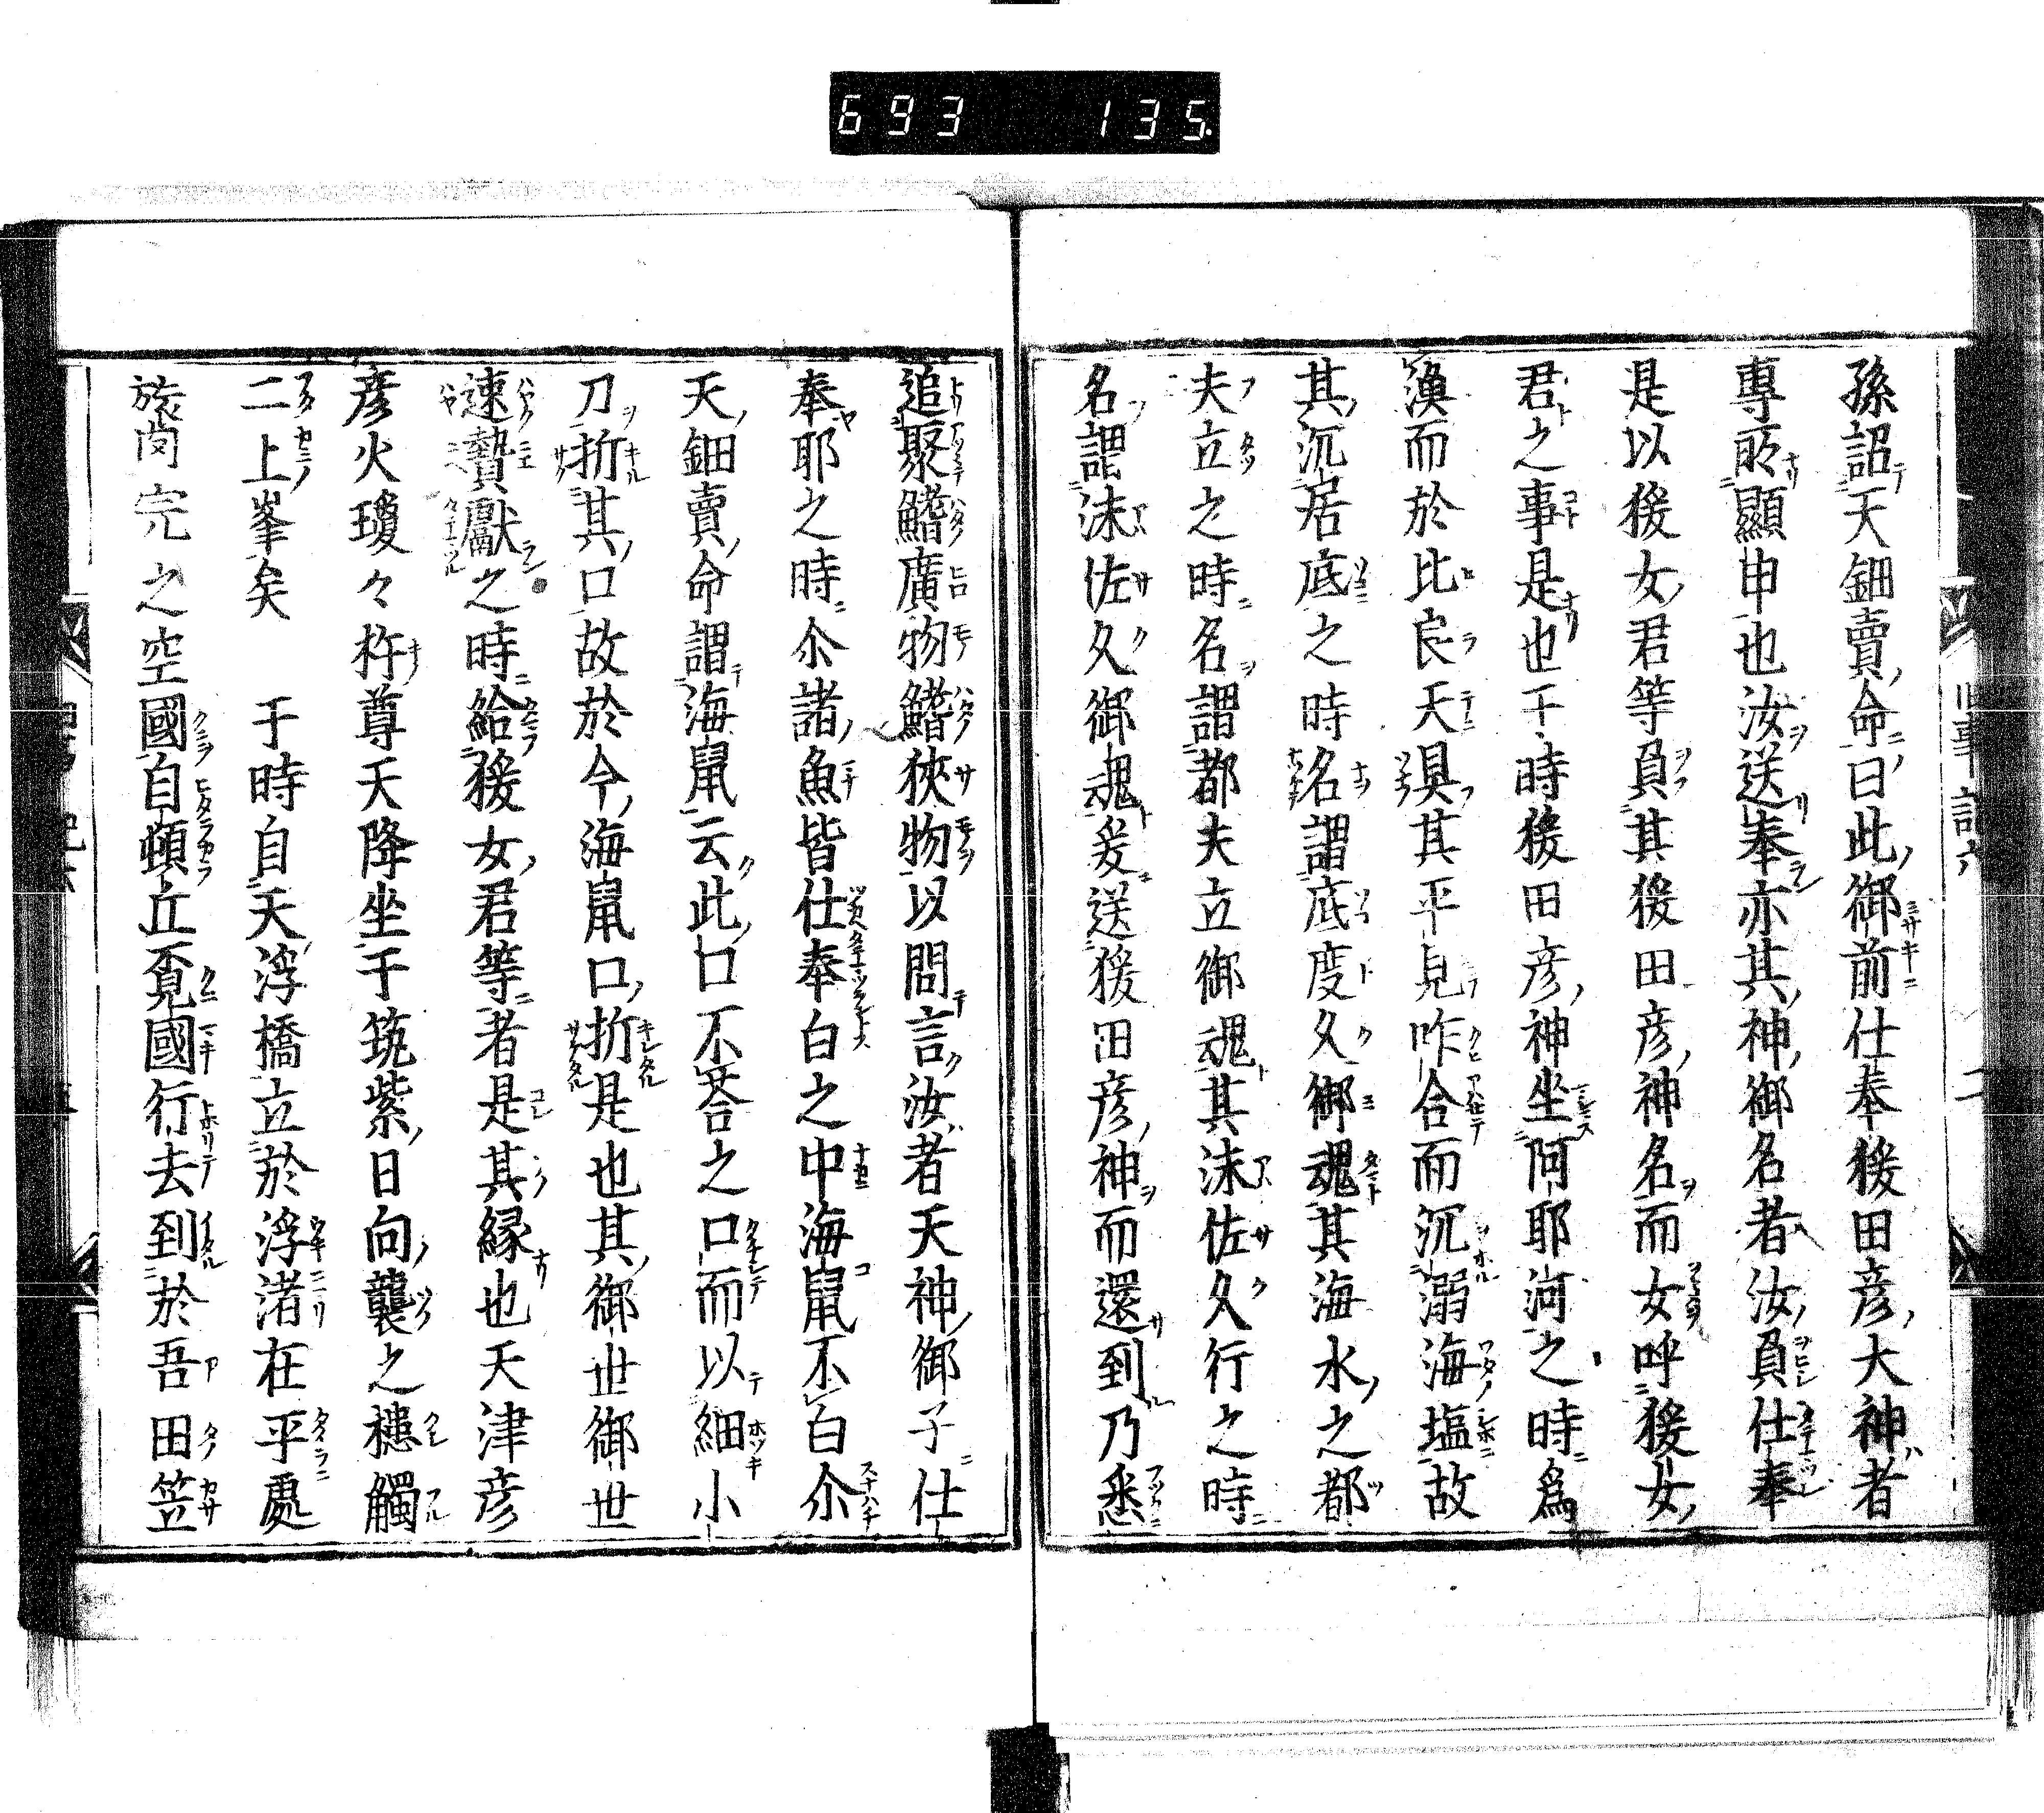 693 135.
孫詔天鈿賣命曰此御前仕奉猨田彦大神者
專所顯申也汝送奉亦其神御名者汝負仕奉
是以猨女君等負其猨田彦神名而女呼猨女
君之事是也于時猨田彦神坐阿耶河之時爲
漁而於比良天倶其平見咋合而沉溺海塩故
其沉居底之時名謂底度久御魂其海水之都
夫立之時名謂都夫立御魂其沫佐久行之時
名謂沫佐久御魂爰送猨田彦神而還到乃悉
追聚鰭廣物鰭狹物以問言汝者天神御子仕
奉耶之時尒諸魚皆仕奉白之中海鼠不白尒
天鈿賣命謂海鼠云此口不荅之口而以細小
刀折其口故於今海鼠口折是也其御世御世
速贄獻之時給猨女君等者是其縁也天津彦
彦火瓊々杵尊天降坐于筑紫日向襲之槵觸
二上峯矣 于時自天浮橋立於浮渚在平處
膂宍之空國自頓丘覓國行去到於吾田笠